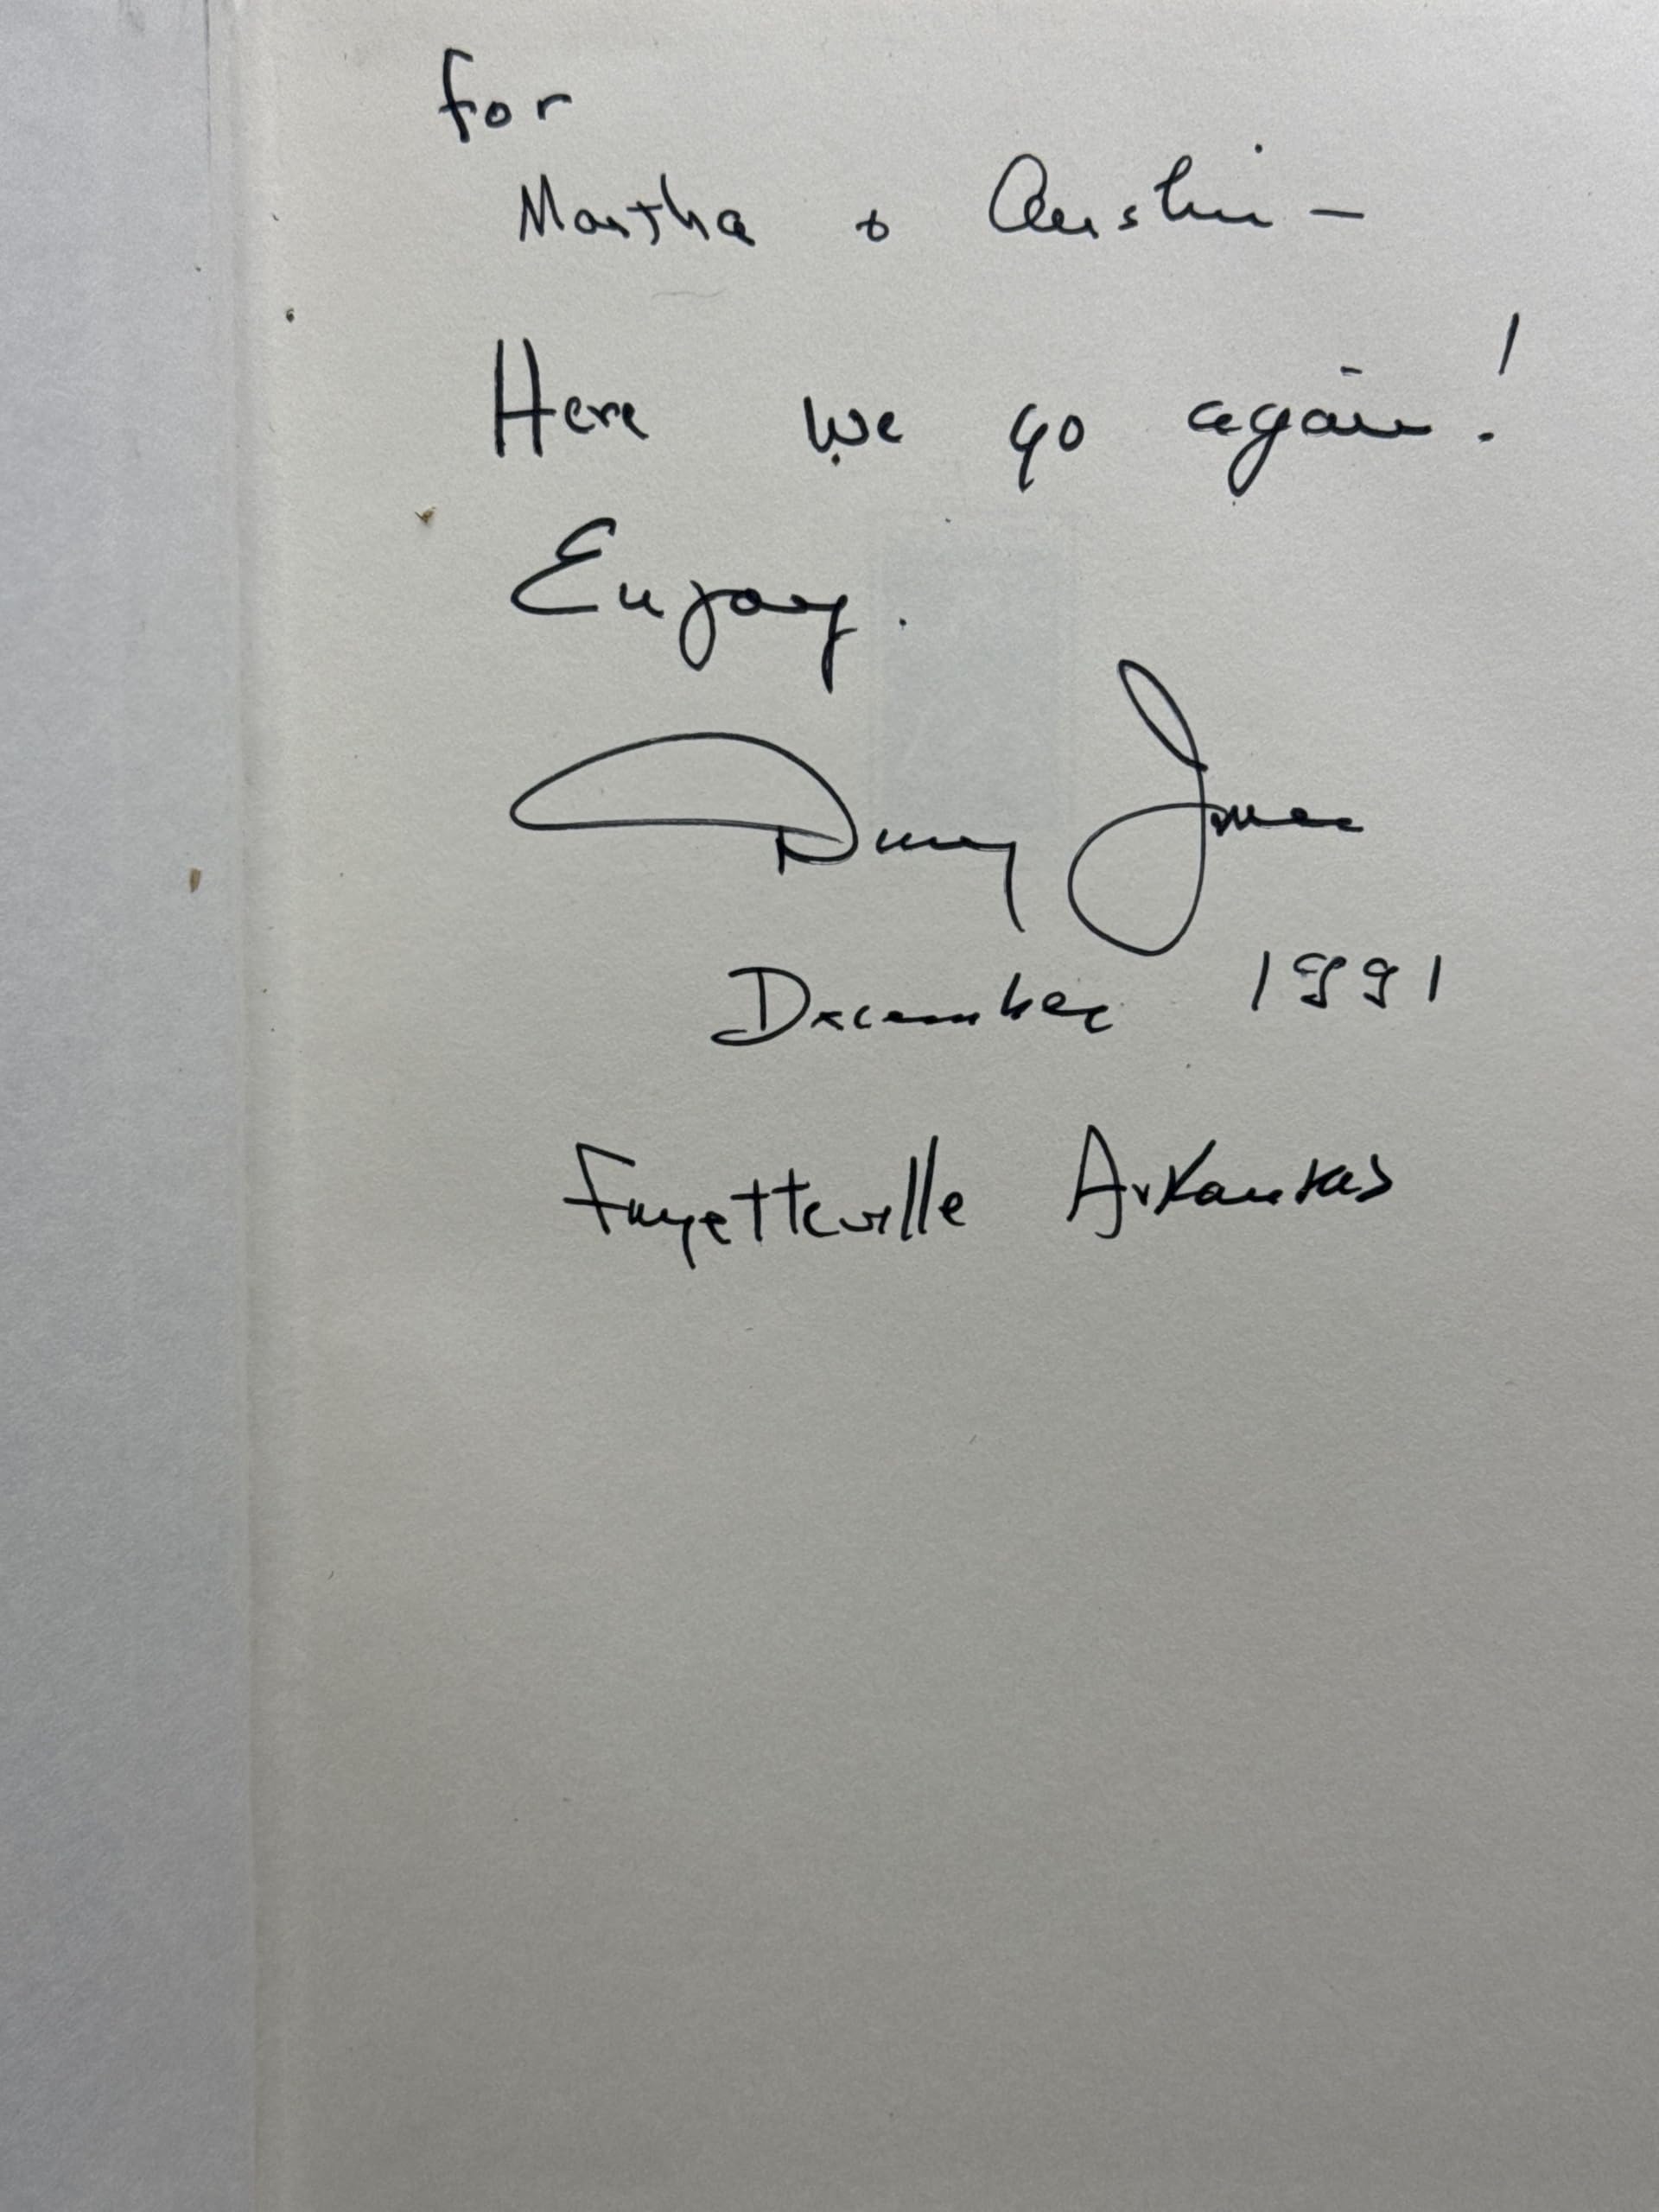 for
Martha & Austin –
Here we go again!
Enjoy.
Jones
December 1991
Fayetteville Arkansas